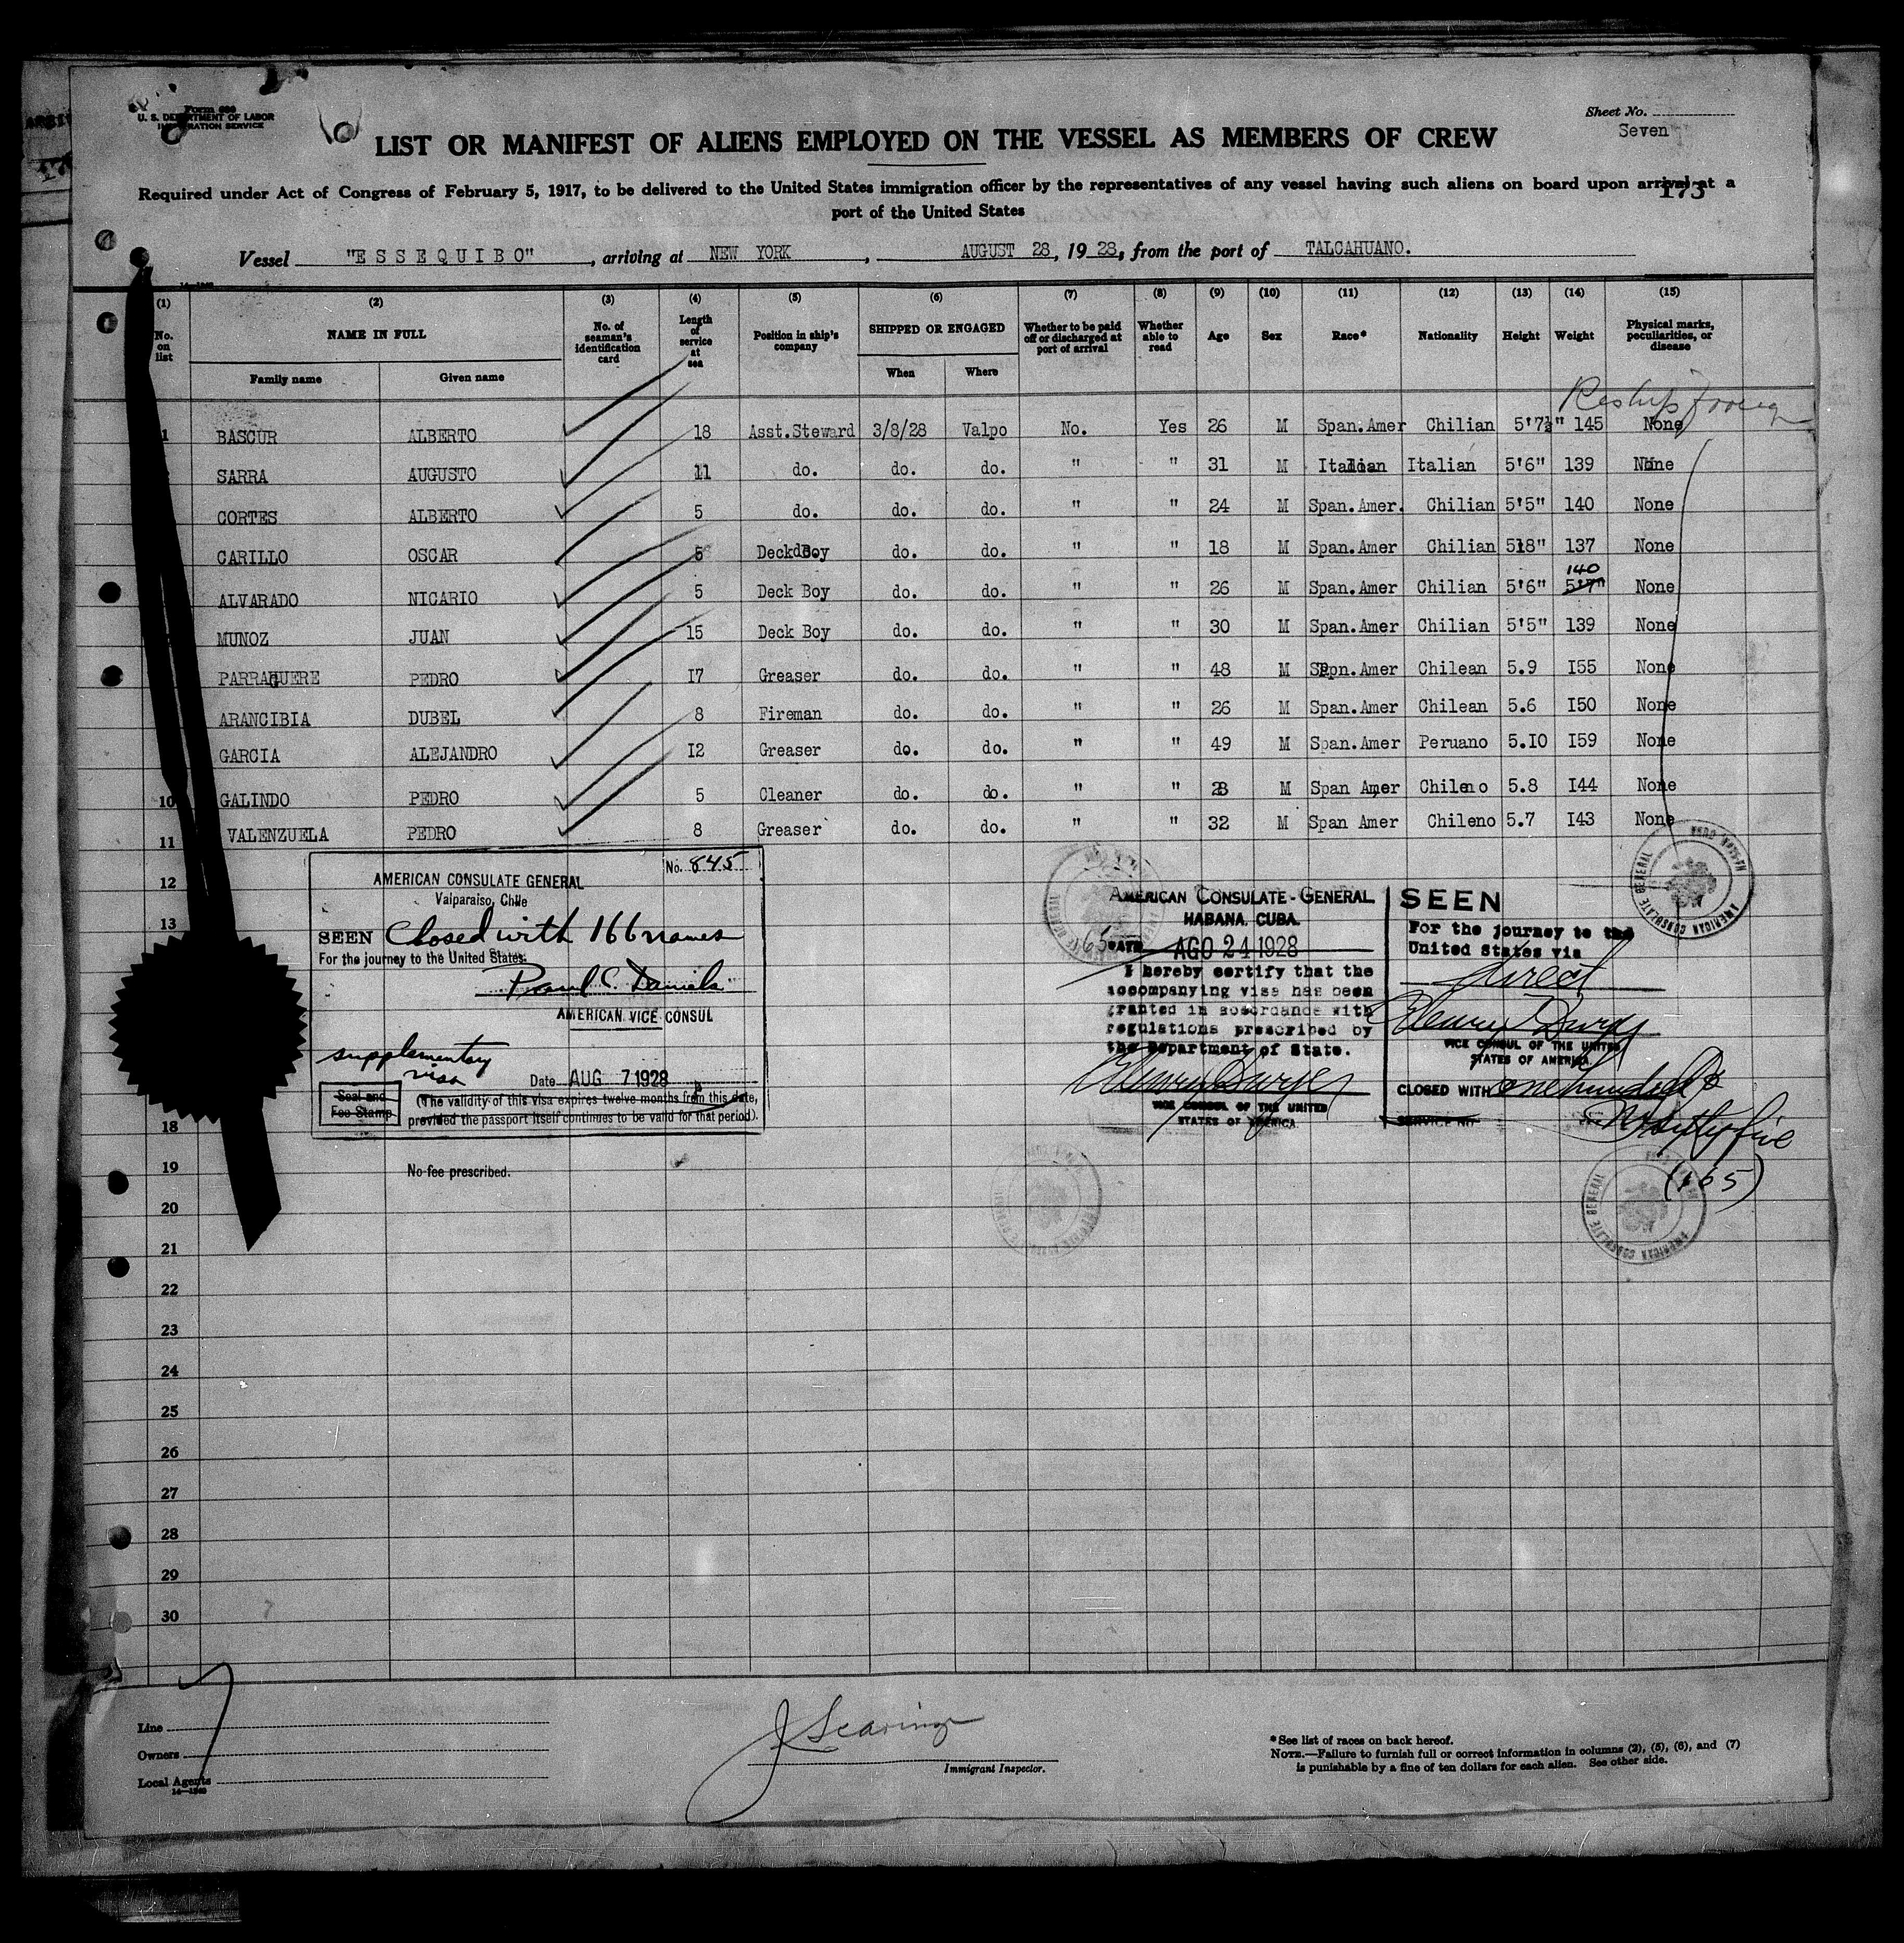 Form 680
U. S. DEPARTMENT OF LABOR
IMMIGRATION SERVICE
Sheet No.
Seven
LIST OR MANIFEST OF ALIENS EMPLOYED ON THE VESSEL AS MEMBERS OF CREW
173
Required under Act of Congress of February 5, 1917, to be delivered to the United States immigration officer by the representatives of any vessel having such aliens on board upon arrival at a
port of the United States
Vessel "ESSEQUIBO", arriving at NEW YORK, AUGUST 28, 1928, from the port of TALCAHUANO.
(1) (2) (3) (4) (5) (6) (7) (8) (9) (10) (11) (12) (13) (14) (15)
No. on list NAME IN FULL No. of seaman's identification card Length of service at sea Position in ship's company SHIPPED OR ENGAGED Whether to be paid off or discharged at port of arrival Whether able to read Age Sex Race* Nationality Height Weight Physical marks, peculiarities, or disease
Family name Given name When Where
Reship foreign
1 BASCUR ALBERTO 18 Asst.Steward 3/8/28 Valpo No. Yes 26 M Span.Amer Chilian 5'7½" 145 None
SARRA AUGUSTO 11 do. do. do. " " 31 M Italian Italian 5'6" 139 None
CORTES ALBERTO 5 do. do. do. " " 24 M Span.Amer. Chilian 5'5" 140 None
CARILLO OSCAR 5 Deck Boy do. do. " " 18 M Span.Amer Chilian 5'8" 137 None
140
ALVARADO NICARIO 5 Deck Boy do. do. " " 26 M Span.Amer Chilian 5'6" 5'7" None
MUNOZ JUAN 15 Deck Boy do. do. " " 30 M Span.Amer Chilian 5'5" 139 None
PARRAGUERE PEDRO I7 Greaser do. do. " " 48 M Span.Amer Chilean 5.9 I55 None
ARANCIBIA DUBEL 8 Fireman do. do. " " 26 M Span.Amer Chilean 5.6 I50 None
GARCIA ALEJANDRO I2 Greaser do. do. " " 49 M Span.Amer Peruano 5.IO I59 None
10 GALINDO PEDRO 5 Cleaner do. do. " " 28 M Span Amer Chileno 5.8 I44 None
11 VALENZUELA PEDRO 8 Greaser do. do. " " 32 M Span Amer Chileno 5.7 I43 None
12
13
18
19
20
21
22
23
24
25
26
27
28
29
30
No. 845
AMERICAN CONSULATE GENERAL
Valparaiso, Chile
SEEN Closed with 166 names
For the journey to the United States.
Paul C. Daniels
AMERICAN VICE CONSUL
supplementary
visa
Date AUG 7 1928
Seal and
Fee Stamp
(The validity of this visa expires twelve months from this date,
provided the passport itself continues to be valid for that period).
No fee prescribed.
AMERICAN CONSULATE-GENERAL
HABANA, CUBA.
DATE AGO 24 1928
I hereby certify that the
accompanying visa has been
granted in accordance with
regulations prescribed by
the Department of State.
VICE CONSUL OF THE UNITED
STATES OF AMERICA.
SEEN
For the journey to the
United States via
direct
VICE CONSUL OF THE UNITED
STATES OF AMERICA.
CLOSED WITH one hundred &
sixty five
SERVICE NO.
(165)
AMERICAN CONSULATE GENERAL
AMERICAN CONSULATE GENERAL
Line
Owners
Local Agents
14—1240
Immigrant Inspector.
*See list of races on back hereof.
NOTE.—Failure to furnish full or correct information in columns (2), (5), (6), and (7)
is punishable by a fine of ten dollars for each alien. See other side.